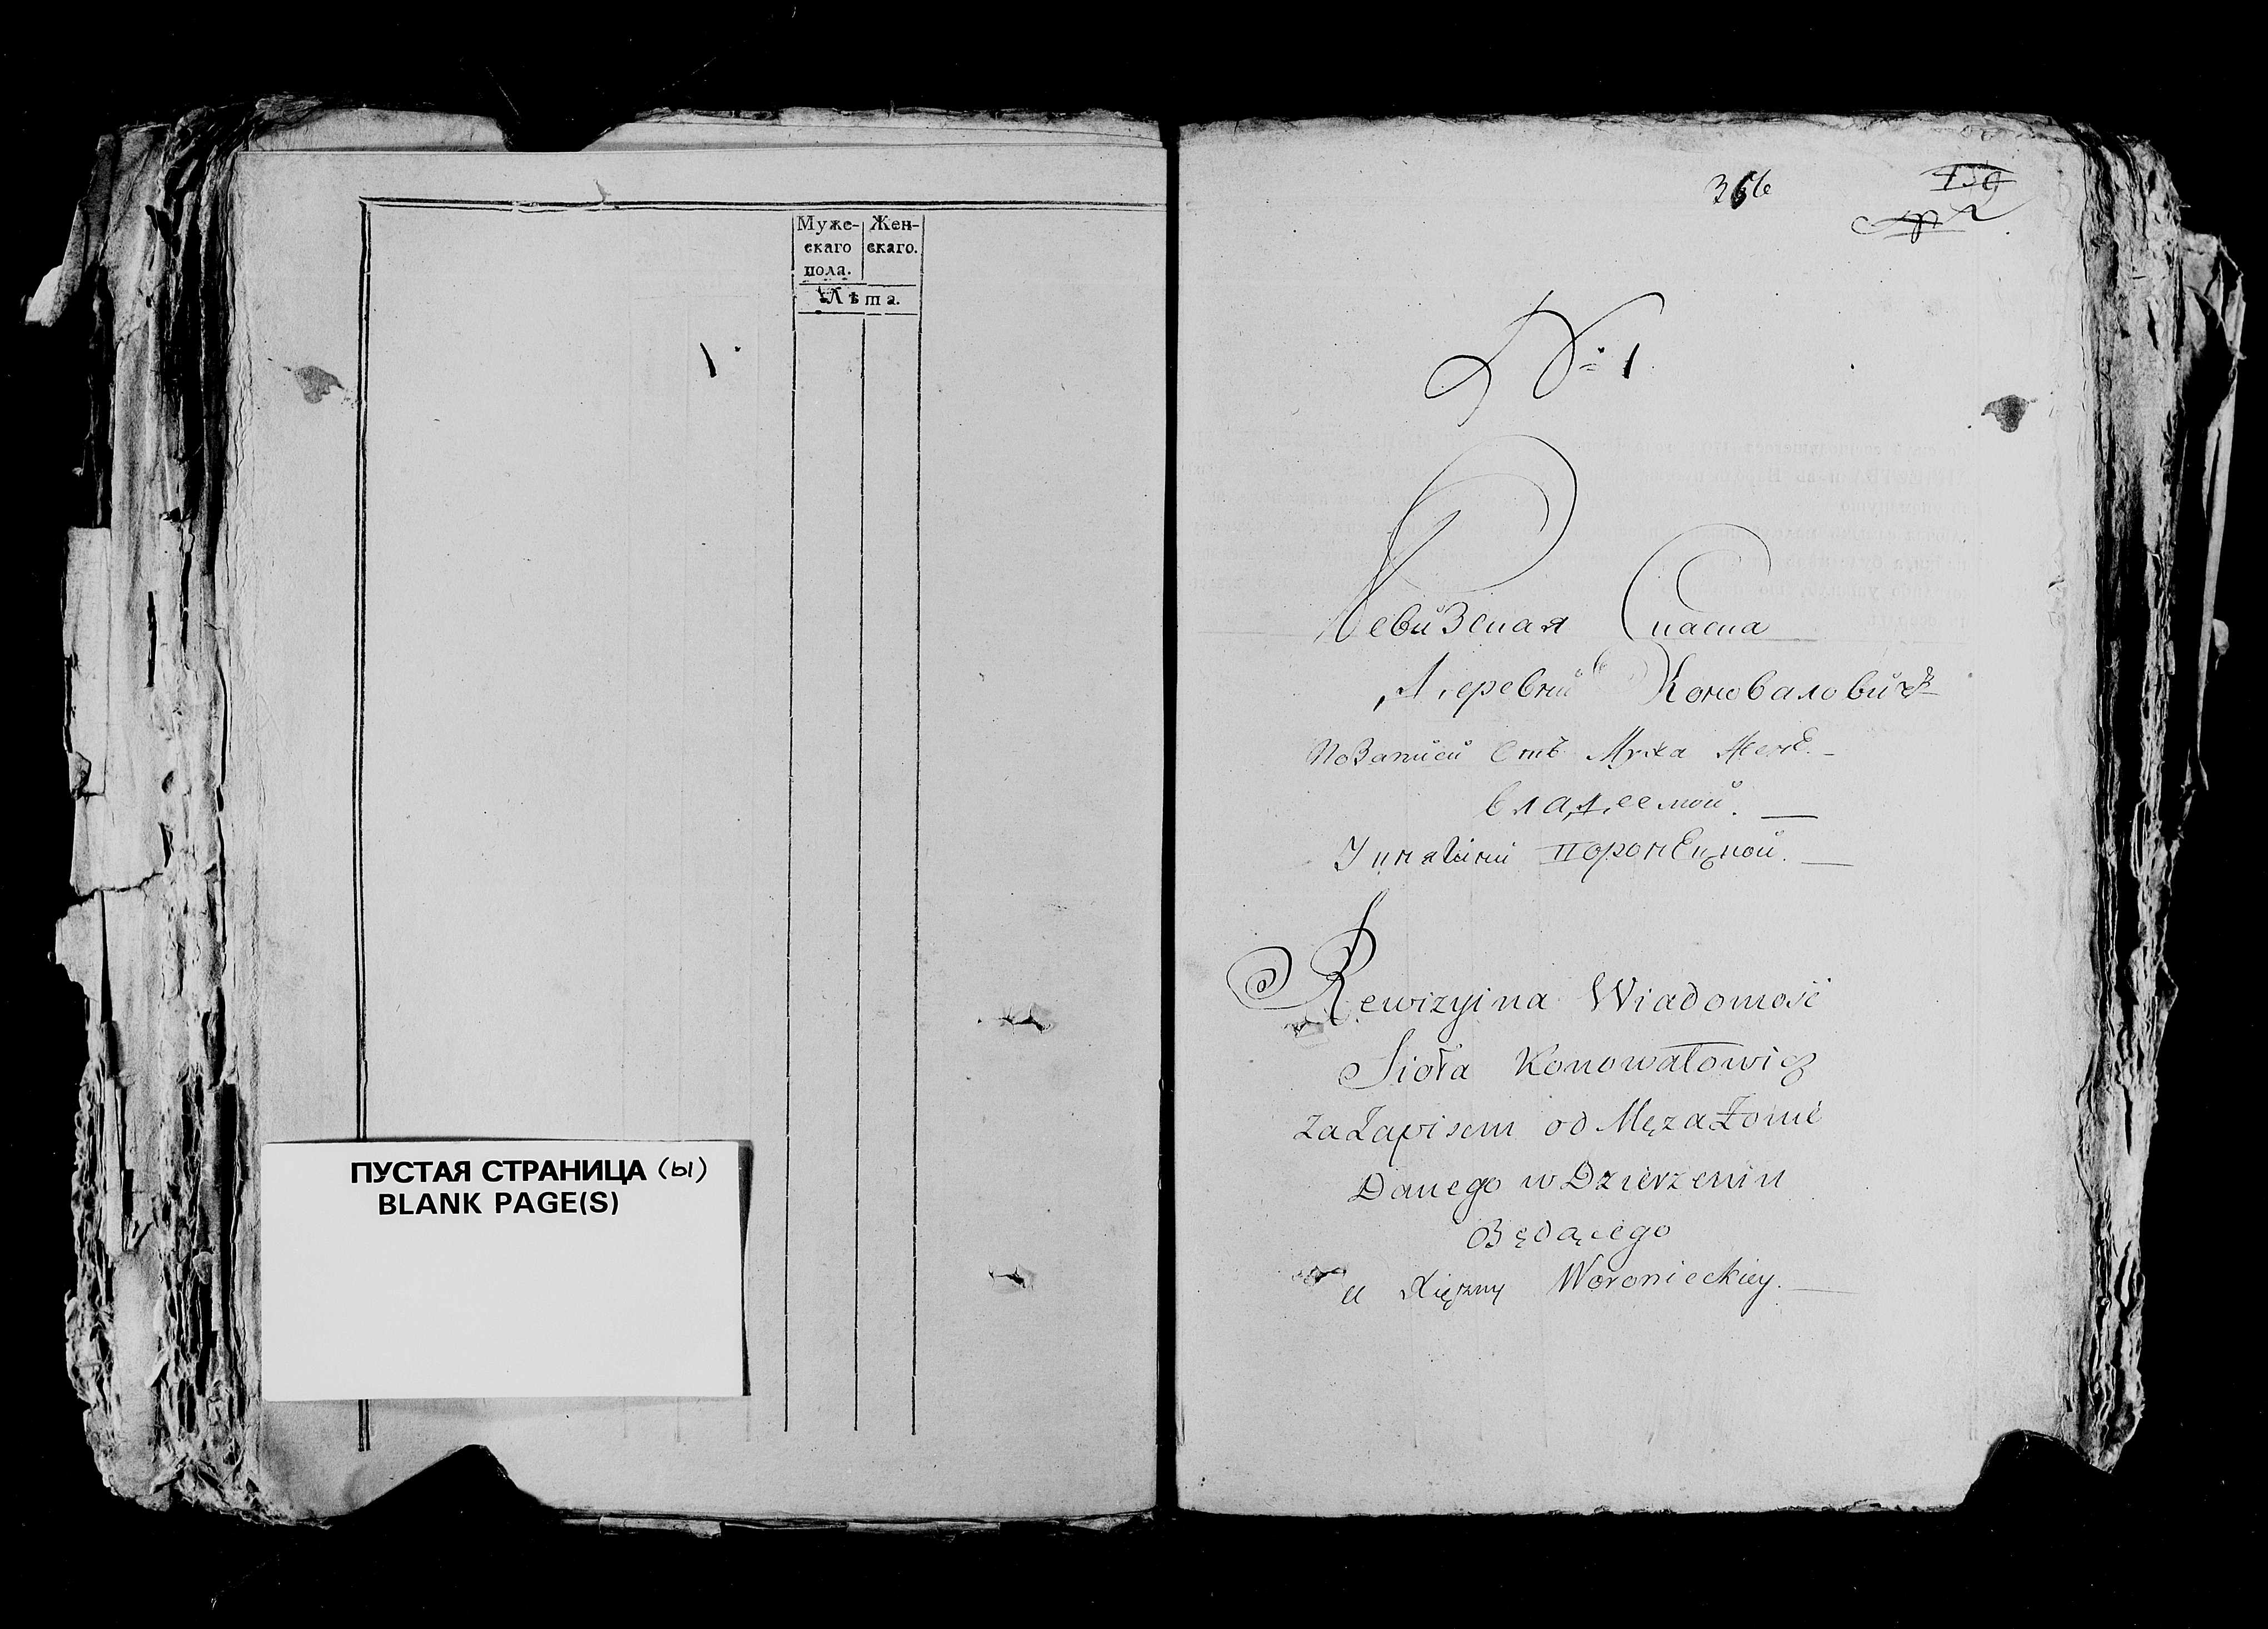 Муже-
скаго
пола.
Жен-
скаго.
Лѣта.
1.
ПУСТАЯ СТРАНИЦА (ы)
BLANK PAGE(S)
№ 1
Ревизская Сказка
Деревни Коноваловичъ
По Записи Отъ Мужа Женѣ
владеемой.
У Княгини
Rewizyina Wiadomość
Sioła Konowałowicz
Za Zapisem od Męza Żonie
Danego w Dzierzeniu
Będącego
u Xięzny Woronieckiey.